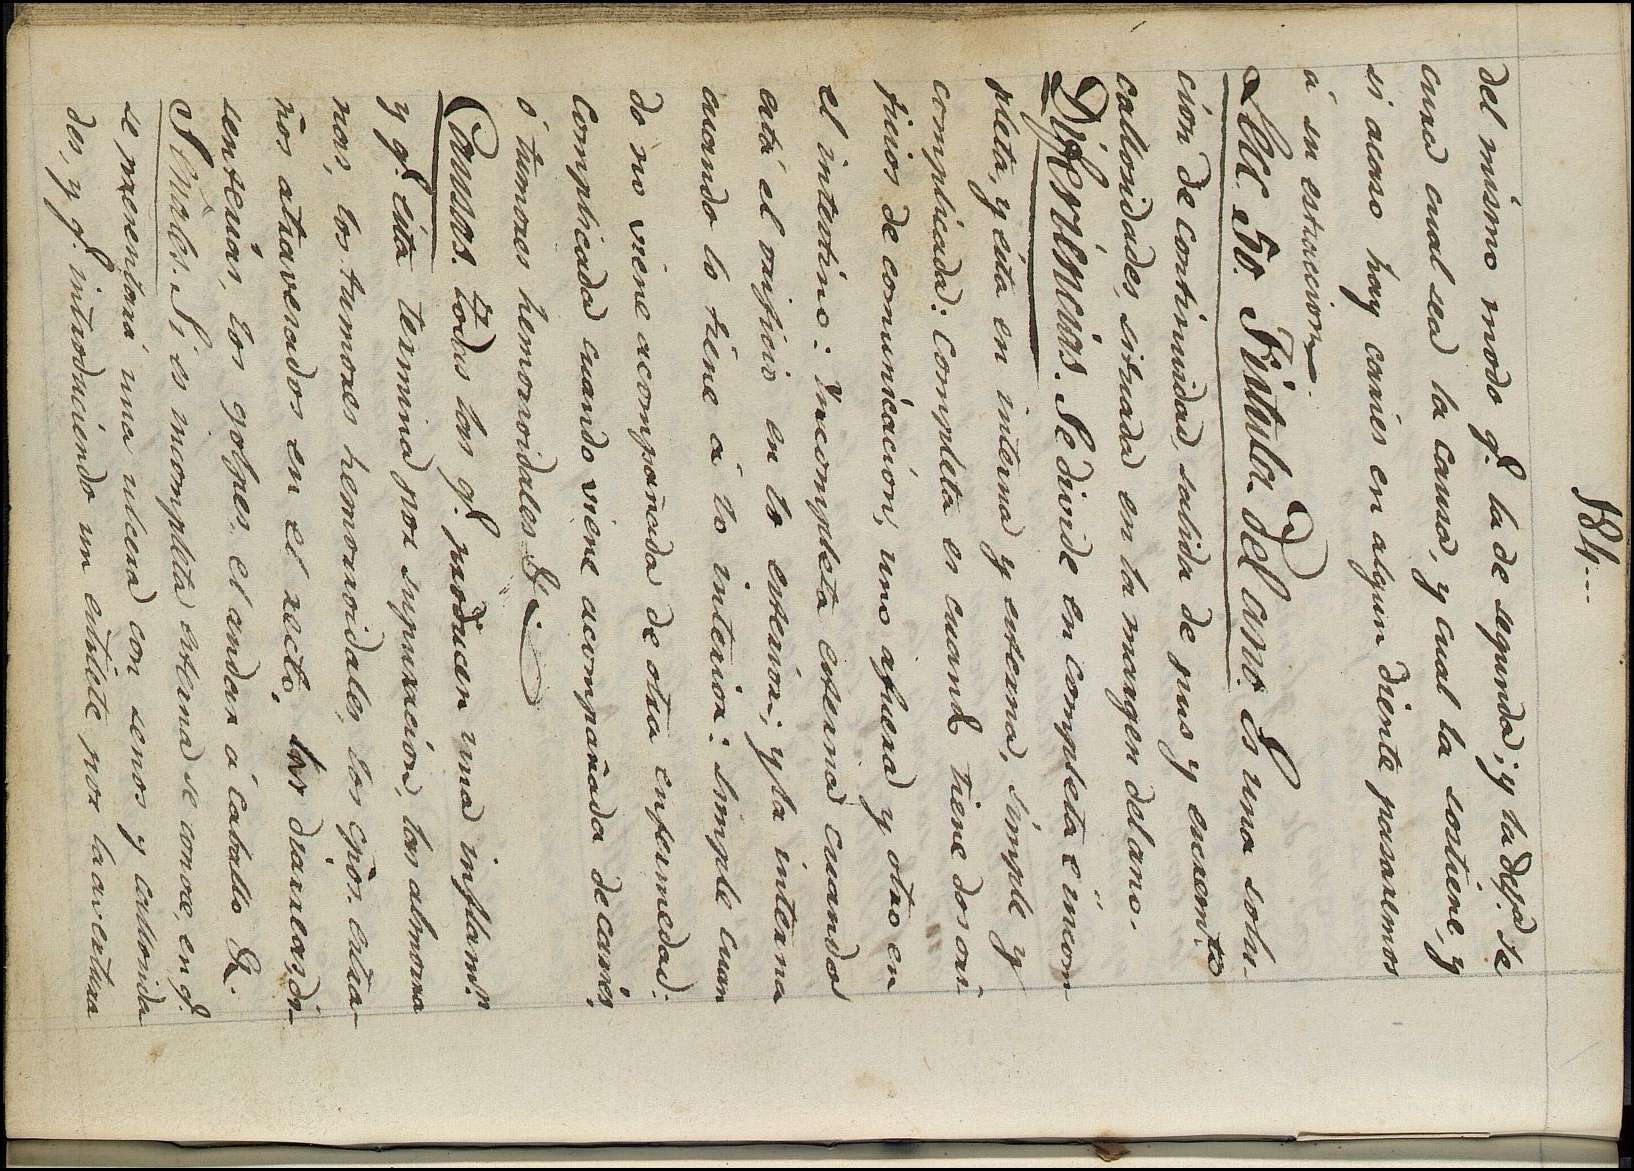 184...
del mismo modo qᵉ. la de segunda; y la de
cuna cual sea la causa, y cual la sostiene, y
si acaso hay caries en algun diente pasaremos
á su estraccion.
Lecc. 50. Fistula del ano. Es una solu-
ción de continuidad, salida de pus y excremᵗᵒ
callosidades, situada en la margen del ano.
Diferiencias. Se divide en completa é incom
pleta, y ésta en interna y externa, simple y
complicada: completa es cuando tiene dos ori-
ficios de comunicación, uno afuera y otro en
el intestino: incompleta externa cuando
está el orificio en lo exterior; y la interna
cuando lo tiene á lo interior: simple cuan
do no viene acompañada de otra enfermedad:
complicada cuando viene acompañada de caries,
ó tumores hemorroidales &.
Causas. todas las qᵉ. producen una inflamⁿ.
y qᵉ. ésta termina por supuracion, las almorra
nas, los tumores hemorroidales, los cpõs. estra-
ños atravesados en el recto, las diarreas, di-
senterias, los golpes. el andar á caballo &.
Señales. Si es incompleta externa se conoce, en qᵉ.
se presentará una ulcera con senos y callosida
des, y qᵉ. introduciendo un estilete por la avertura